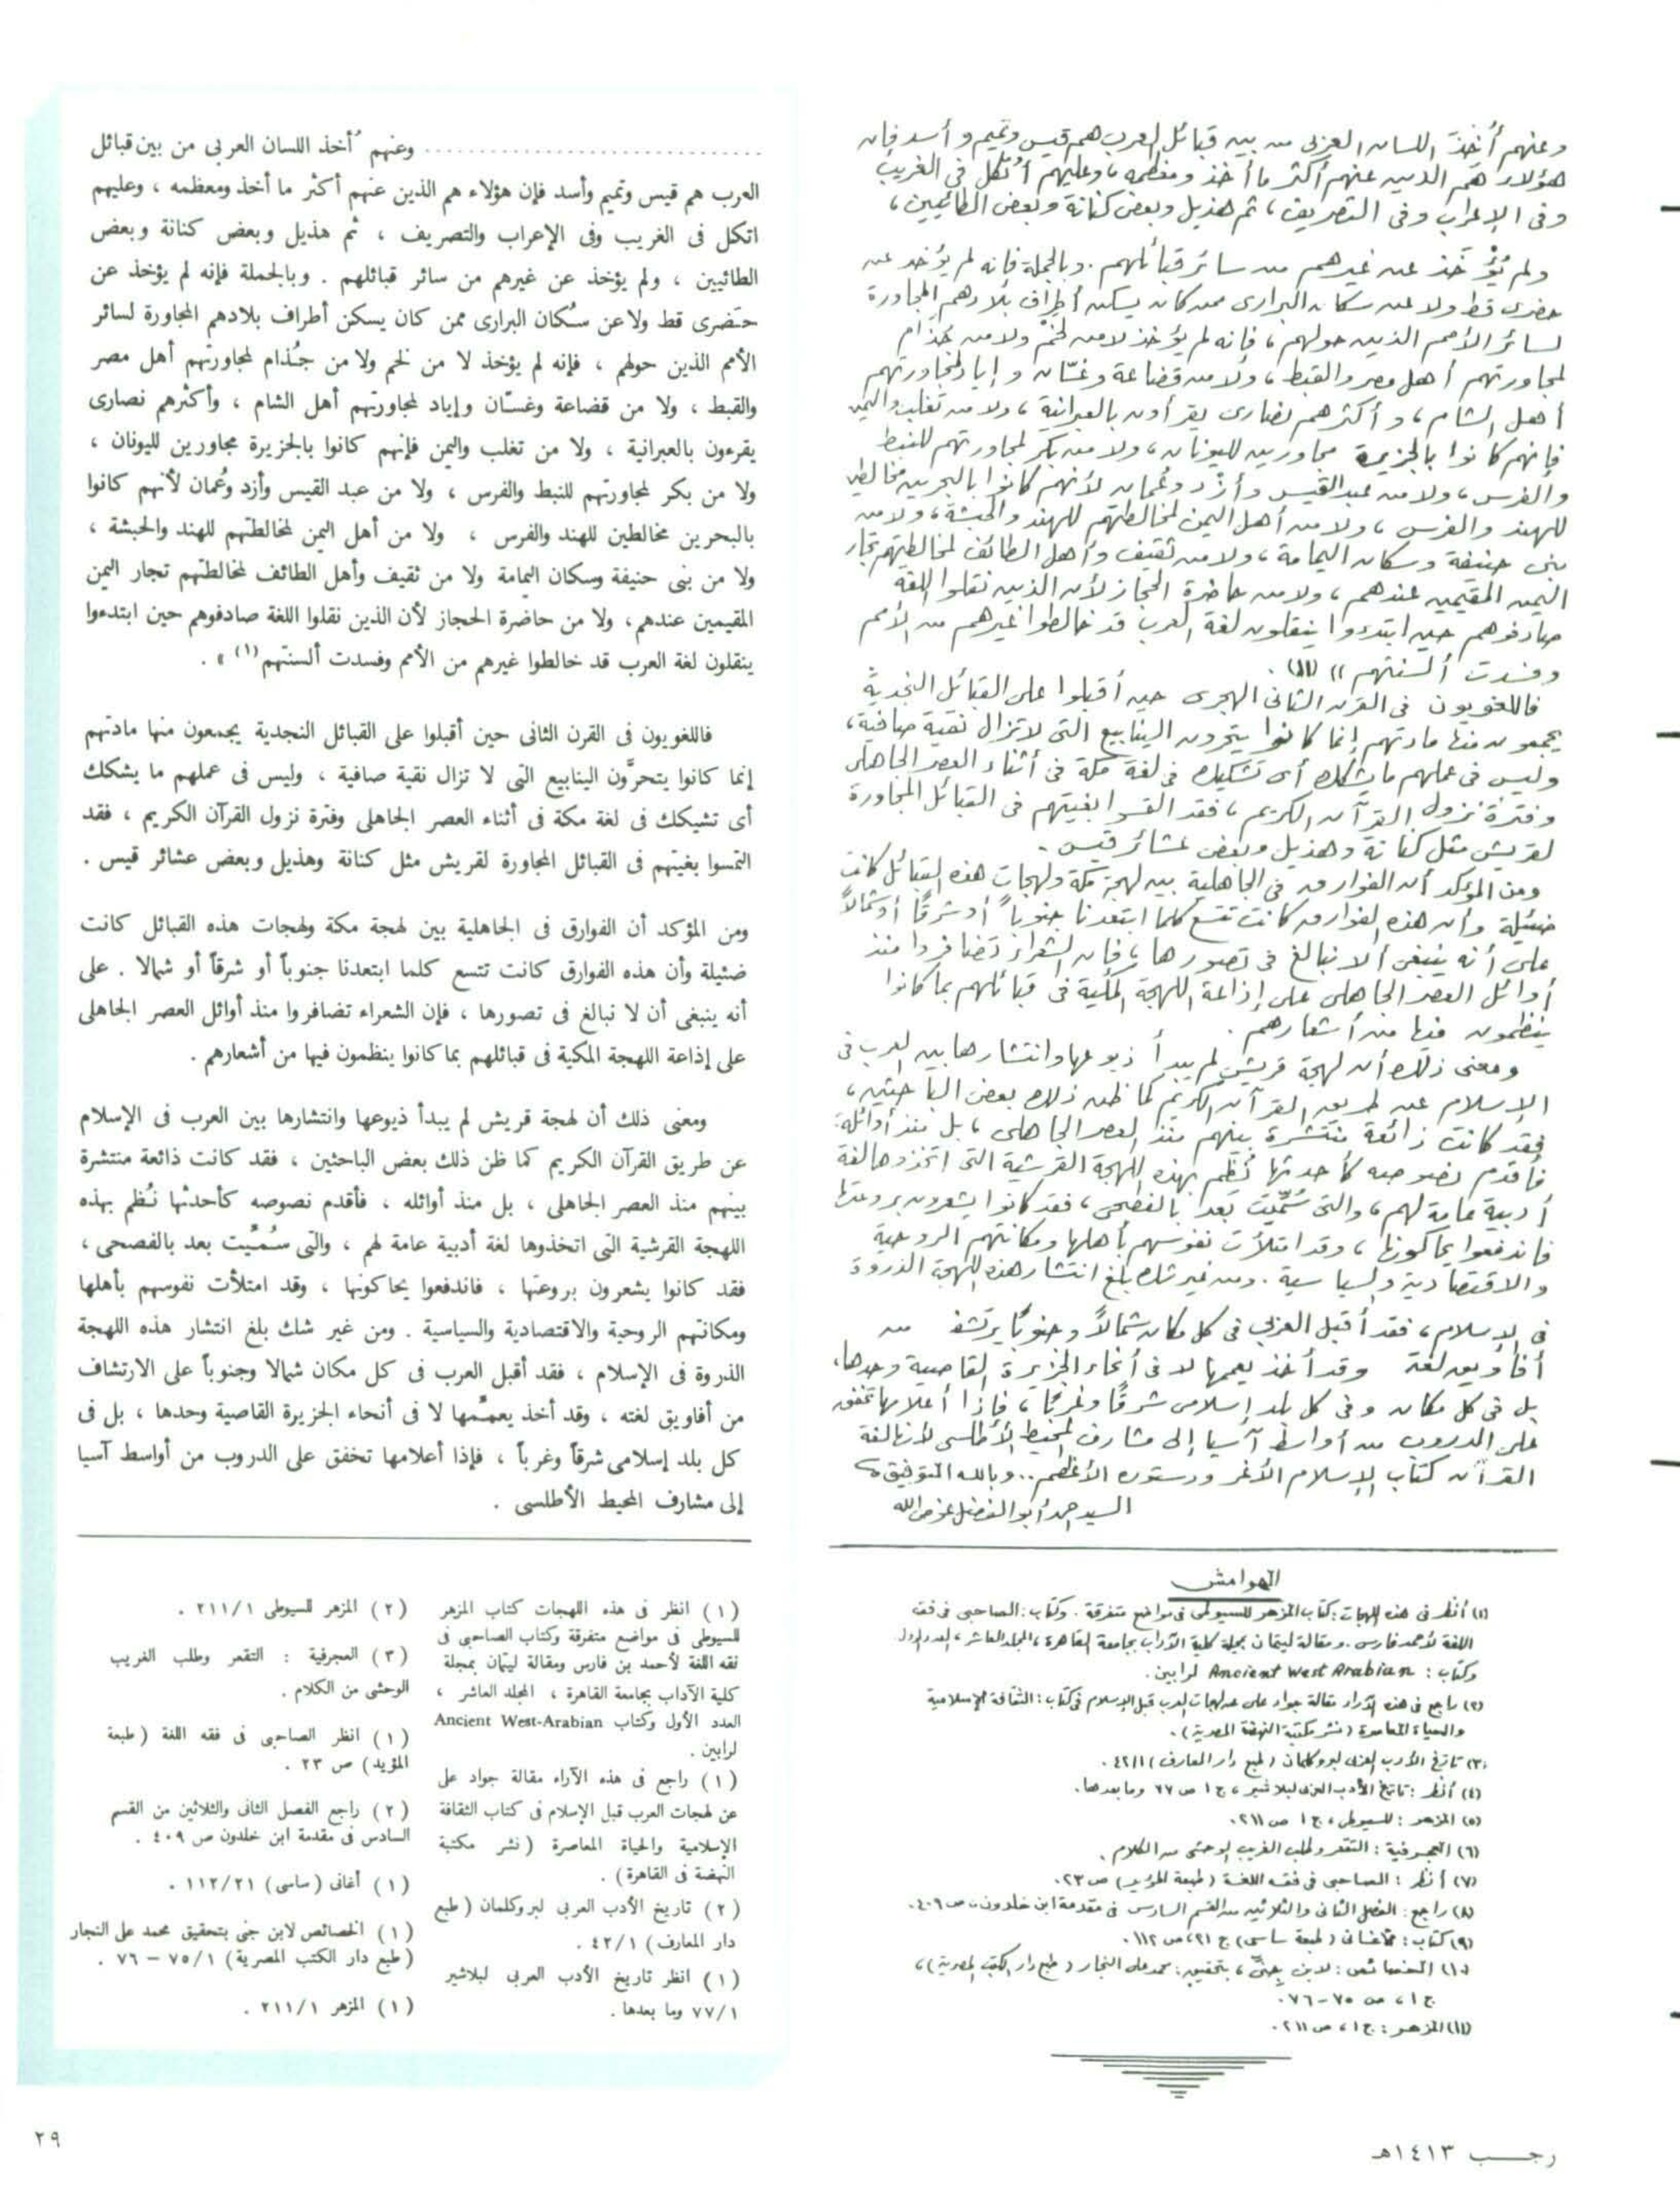 وعنهم أُخِذَ اللسان العربى من بين قبائل العرب هم قيس وتميم وأسد فإن
هؤلاء هم الذين عنهم أكثر ما أخذ ومعظمه، وعليهم اُتكل فى الغريب
وفى الإعراب وفى التصريف، ثم هذيل وبعض كنانة وبعض الطائيين،
ولم يُؤْخَذ عن غيرهم من سائر قبائلهم. وبالجملة فإنه لم يؤخذ عن
حضرى قط ولا عن سكان البرارى ممن كان يسكن أطراف بلادهم المجاورة
لسائر الأمم الذين حولهم، فإنه لم يؤخذ لا من لخم ولا من جُذام
لمجاورتهم أهل مصر والقبط، ولا من قضاعة وغسّان وإياد لمجاورتهم
أهل الشام، وأكثرهم نصارى يقرأون بالعبرانية، ولا من تغلب واليمن
فإنهم كانوا بالجزيرة مجاورين لليونان، ولا من بكر لمجاورتهم للنبط
والفرس، ولا من عبد القيس وأزد وعُمان لأنهم كانوا بالبحرين مخالطين
للهند والفرس، ولا من أهل اليمن لمخالطتهم للهند والحبشة، ولا من
بنى حنيفة وسكان اليمامة، ولا من ثقيف وأهل الطائف لمخالطتهم تجار
اليمن المقيمين عندهم، ولا من حاضرة الحجاز لأن الذين نقلوا اللغة
صادفوهم حين ابتدءوا ينقلون لغة العرب قد خالطوا غيرهم من الأمم
وفسدت ألسنتهم)) (١١).
فاللغويون فى القرن الثانى الهجرى حين أقبلوا على القبائل النجدية
يجمعون منها مادتهم إنما كانوا يتحرون الينابيع التى لا تزال نقية صافية،
وليس فى عملهم ما يشكك أى تشكيك فى لغة مكة فى أثناء العصر الجاهلى
وفترة نزول القرآن الكريم، فقد التمسوا بغيتهم فى القبائل المجاورة
لقريش مثل كنانة وهذيل وبعض عشائر قيس.
ومن المؤكد أن الفوارق فى الجاهلية بين لهجة مكة ولهجات هذه القبائل كانت
ضئيلة وأن هذه الفوارق كانت تتسع كلما ابتعدنا جنوباً أو شرقاً أو شمالاً
على أنه ينبغى ألا نبالغ فى تصورها، فإن الشعراء تضافروا منذ
أوائل العصر الجاهلى على إذاعة اللهجة المكية فى قبائلهم بما كانوا
ينظمون فيها من أشعارهم.
ومعنى ذلك أن لهجة قريش لم يبدأ ذيوعها وانتشارها بين العرب فى
الإسلام عن طريق القرآن الكريم كما ظن ذلك بعض الباحثين،
فقد كانت ذائعة منتشرة بينهم منذ العصر الجاهلى، بل منذ أوائله،
فأقدم نصوصه كأحدثها نُظم بهذه اللهجة القرشية التى اتخذوها لغة
أدبية عامة لهم، والتى سُمِّيت بعد بالفصحى، فقد كانوا يشعرون بروعتها
فاندفعوا يحاكونها، وقد امتلأت نفوسهم بأهلها ومكانتهم الروحية
والاقتصادية والسياسية. ومن غير شك بلغ انتشار هذه اللهجة الذروة
فى الإسلام، فقد أقبل العربى فى كل مكان شمالاً وجنوباً يرتشف من
أفاويق لغته وقد أخذ يعممها لا فى أنحاء الجزيرة القاصية وحدها،
بل فى كل مكان وفى كل بلد إسلامى شرقاً وغرباً، فإذا أعلامها تخفق
على الدروب من أواسط آسيا إلى مشارف المحيط الأطلسى لأنها لغة
القرآن كتاب الإسلام الأغر ودستوره الأعظم.. وبالله التوفيق،
السيد أحمد أبو الفضل عوض الله
الهوامش
(١) أنظر فى هذه اللهجات: كتاب المزهر للسيوطى فى مواضع متفرقة. وكتاب: الصاحبى فى فقه
اللغة لأحمد فارس. ومقالة ليتمان بمجلة كلية الآداب بجامعة القاهرة، المجلد العاشر، العدد الأول.
وكتاب: Ancient West Arabian لرابين.
(٢) راجع فى هذه الآراء مقالة جواد على عن لهجات العرب قبل الإسلام فى كتاب: الثقافة الإسلامية
والحياة المعاصرة (نشر مكتبة النهضة المصرية).
(٣) تاريخ الأدب العربى لبروكلمان (طبع دار المعارف) ٤٢/١.
(٤) أنظر: تاريخ الأدب العربى لبلاشير، ج١ ص ٧٧ وما بعدها.
(٥) المزهر: للسيوطى، ج١ ص ٢١١.
(٦) العجرفية: التقعر وطلب الغريب الوحشى من الكلام.
(٧) أنظر: الصاحبى فى فقه اللغة (طبعة المؤيد) ص ٢٣.
(٨) راجع: الفصل الثانى والثلاثين من القسم السادس فى مقدمة ابن خلدون، ص ٤٠٩.
(٩) كتاب: أغانى (طبعة ساسى) ج ٢١، ص ١١٢.
(١٠) الخصائص: لابن جنى، بتحقيق: محمد على النجار (طبع دار الكتب المصرية)،
ج١، ص ٧٥-٧٦.
(١١) المزهر: ج١، ص ٢١١.
رجـــب ١٤١٣هـ
.............................. وعنهم أُخذ اللسان العربى من بين قبائل
العرب هم قيس وتميم وأسد فإن هؤلاء هم الذين عنهم أكثر ما أخذ ومعظمه ، وعليهم
اتكل فى الغريب وفى الإعراب والتصريف ، ثم هذيل وبعض كنانة وبعض
الطائيين ، ولم يؤخذ عن غيرهم من سائر قبائلهم . وبالجملة فإنه لم يؤخذ عن
حَضرى قط ولا عن سُكان البرارى ممن كان يسكن أطراف بلادهم المجاورة لسائر
الأمم الذين حولهم ، فإنه لم يؤخذ لا من لخم ولا من جُذام لمجاورتهم أهل مصر
والقبط ، ولا من قضاعة وغسّان وإياد لمجاورتهم أهل الشام ، وأكثرهم نصارى
يقرءون بالعبرانية ، ولا من تغلب واليمن فإنهم كانوا بالجزيرة مجاورين لليونان ،
ولا من بكر لمجاورتهم للنبط والفرس ، ولا من عبد القيس وأزد وعُمان لأنهم كانوا
بالبحرين مخالطين للهند والفرس ، ولا من أهل اليمن لمخالطتهم للهند والحبشة ،
ولا من بنى حنيفة وسكان اليمامة ولا من ثقيف وأهل الطائف لمخالطتهم تجار اليمن
المقيمين عندهم، ولا من حاضرة الحجاز لأن الذين نقلوا اللغة صادفوهم حين ابتدءوا
ينقلون لغة العرب قد خالطوا غيرهم من الأمم وفسدت ألسنتهم(١) » .
فاللغويون فى القرن الثانى حين أقبلوا على القبائل النجدية يجمعون منها مادتهم
إنما كانوا يتحرَّون الينابيع التى لا تزال نقية صافية ، وليس فى عملهم ما يشكك
أى تشيكك فى لغة مكة فى أثناء العصر الجاهلى وفترة نزول القرآن الكريم ، فقد
التمسوا بغيتهم فى القبائل المجاورة لقريش مثل كنانة وهذيل وبعض عشائر قيس .
ومن المؤكد أن الفوارق فى الجاهلية بين لهجة مكة ولهجات هذه القبائل كانت
ضئيلة وأن هذه الفوارق كانت تتسع كلما ابتعدنا جنوباً أو شرقاً أو شمالا . على
أنه ينبغى أن لا نبالغ فى تصورها ، فإن الشعراء تضافروا منذ أوائل العصر الجاهلى
على إذاعة اللهجة المكية فى قبائلهم بما كانوا ينظمون فيها من أشعارهم .
ومعنى ذلك أن لهجة قريش لم يبدأ ذيوعها وانتشارها بين العرب فى الإسلام
عن طريق القرآن الكريم كما ظن ذلك بعض الباحثين ، فقد كانت ذائعة منتشرة
بينهم منذ العصر الجاهلى ، بل منذ أوائله ، فأقدم نصوصه كأحدثها نُظم بهذه
اللهجة القرشية التى اتخذوها لغة أدبية عامة لهم ، والتى سُمِّيت بعد بالفصحى ،
فقد كانوا يشعرون بروعتها ، فاندفعوا يحاكونها ، وقد امتلأت نفوسهم بأهلها
ومكانتهم الروحية والاقتصادية والسياسية . ومن غير شك بلغ انتشار هذه اللهجة
الذروة فى الإسلام ، فقد أقبل العرب فى كل مكان شمالا وجنوباً على الارتشاف
من أفاويق لغته ، وقد أخذ يعمِّمها لا فى أنحاء الجزيرة القاصية وحدها ، بل فى
كل بلد إسلامى شرقاً وغرباً ، فإذا أعلامها تخفق على الدروب من أواسط آسيا
إلى مشارف المحيط الأطلسى .
(١) انظر فى هذه اللهجات كتاب المزهر
للسيوطى فى مواضع متفرقة وكتاب الصاحبى فى
فقه اللغة لأحمد بن فارس ومقالة ليتمان بمجلة
كلية الآداب بجامعة القاهرة ، المجلد العاشر ،
العدد الأول وكتاب Ancient West-Arabian
لرابين .
(١) راجع فى هذه الآراء مقالة جواد على
عن لهجات العرب قبل الإسلام فى كتاب الثقافة
الإسلامية والحياة المعاصرة (نشر مكتبة
النهضة فى القاهرة) .
(٢) تاريخ الأدب العربى لبروكلمان (طبع
دار المعارف) ٤٢/١ .
(١) انظر تاريخ الأدب العربى لبلاشير
٧٧/١ وما بعدها .
(٢) المزهر للسيوطى ٢١١/١ .
(٣) العجرفية : التقعر وطلب الغريب
الوحشى من الكلام .
(١) انظر الصاحبى فى فقه اللغة (طبعة
المؤيد) ص ٢٣ .
(٢) راجع الفصل الثانى والثلاثين من القسم
السادس فى مقدمة ابن خلدون ص ٤٠٩ .
(١) أغانى (ساسى) ١١٢/٢١ .
(١) الخصائص لابن جنى بتحقيق محمد على النجار
(طبع دار الكتب المصرية) ٧٥/١ – ٧٦ .
(١) المزهر ٢١١/١ .
٢٩